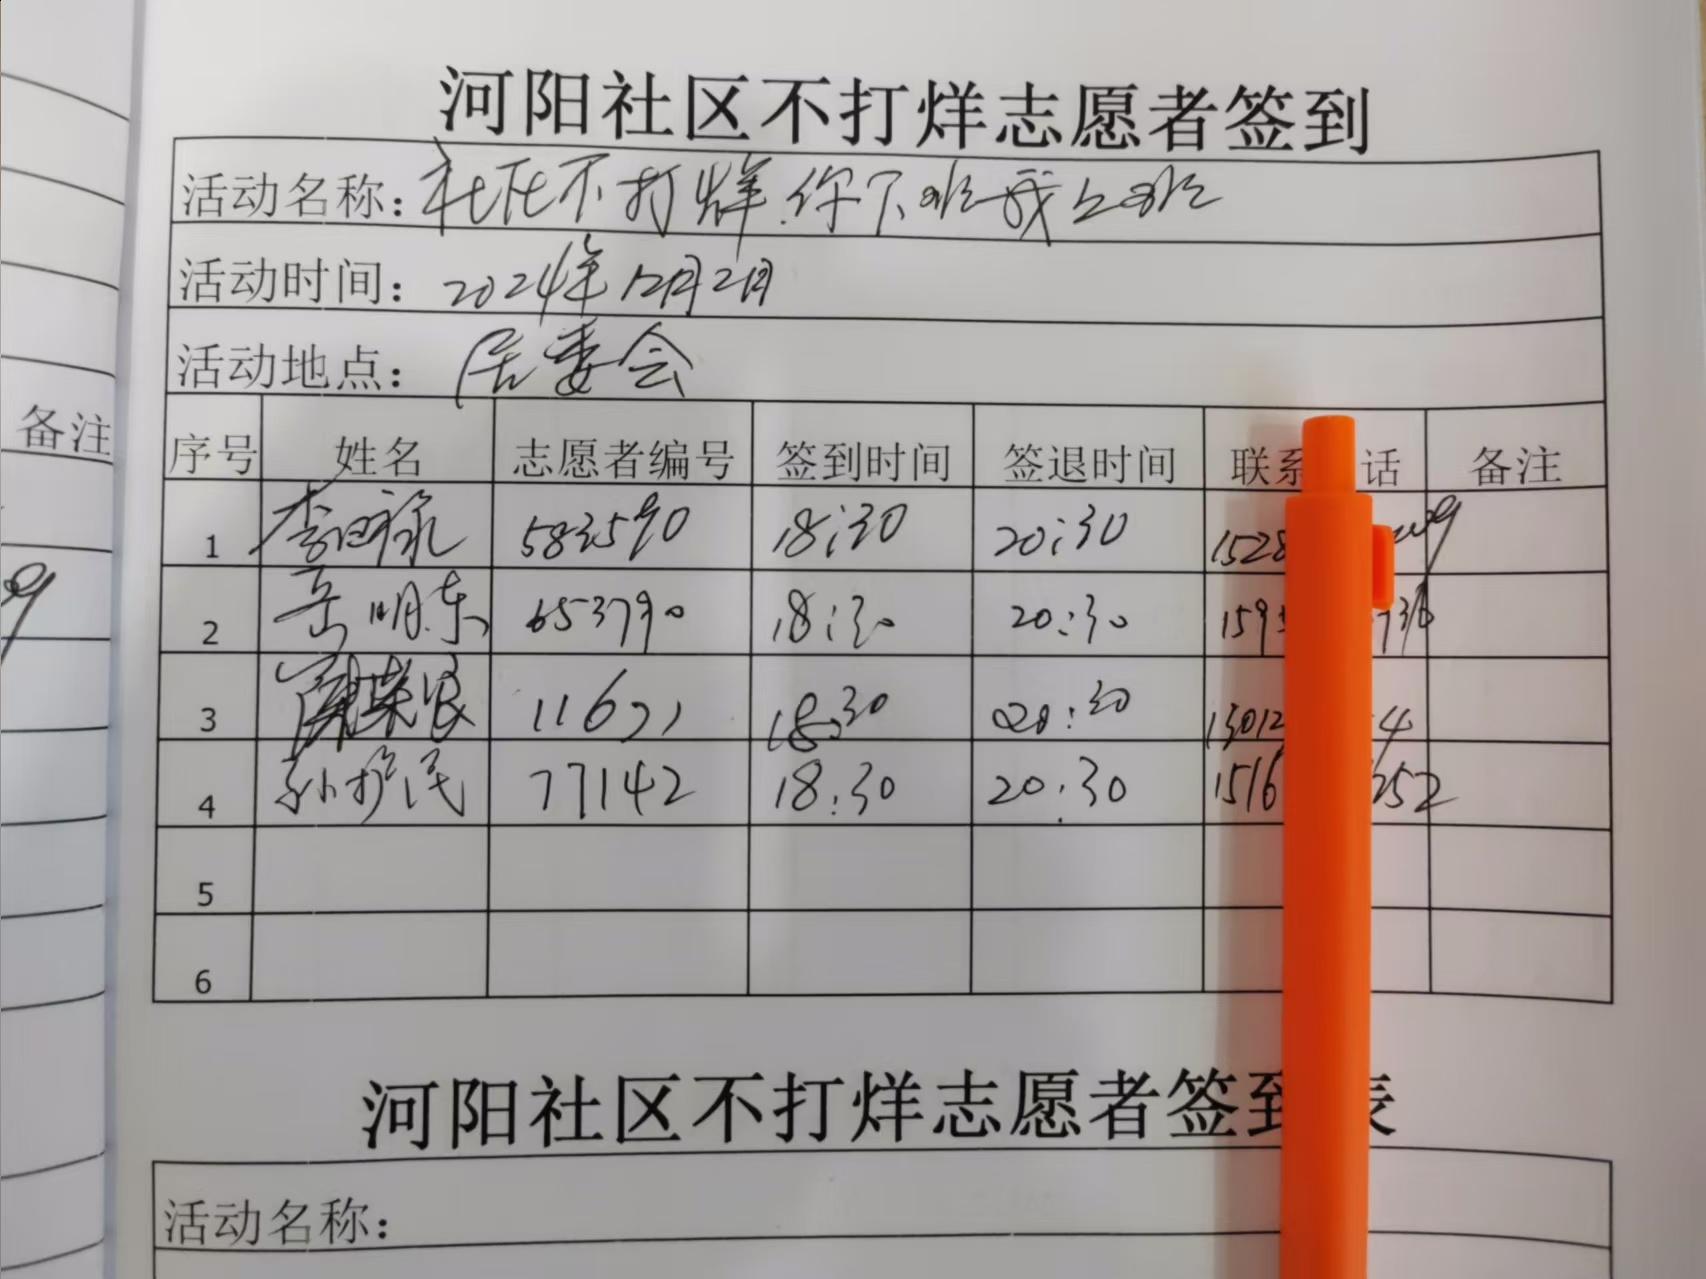 河阳社区不打烊志愿者签到
活动名称：社区不打烊 你下班我上班
活动时间：2024年12月2日
活动地点：居委会
备注
序号 姓名 志愿者编号 签到时间 签退时间 联系 话 备注
1 583590 18:30 20:30 1528
2 岳明东 653790 18:30 20:30 159
3 18:30 20:30 13012 4
4 77142 18:30 20:30 1516 252
5
6
河阳社区不打烊志愿者签到表
活动名称：